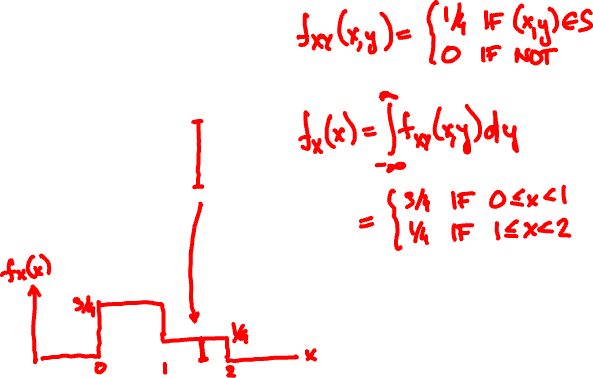 f_XY(x,y) = { 1/4 IF (x,y) ∈ S
0 IF NOT
f_X(x) = ∫_{-∞}^{∞} f_XY(x,y) dy
= { 3/4 IF 0 ≤ x < 1
1/4 IF 1 ≤ x < 2
f_X(x)
3/4
1/4
0 1 2 x